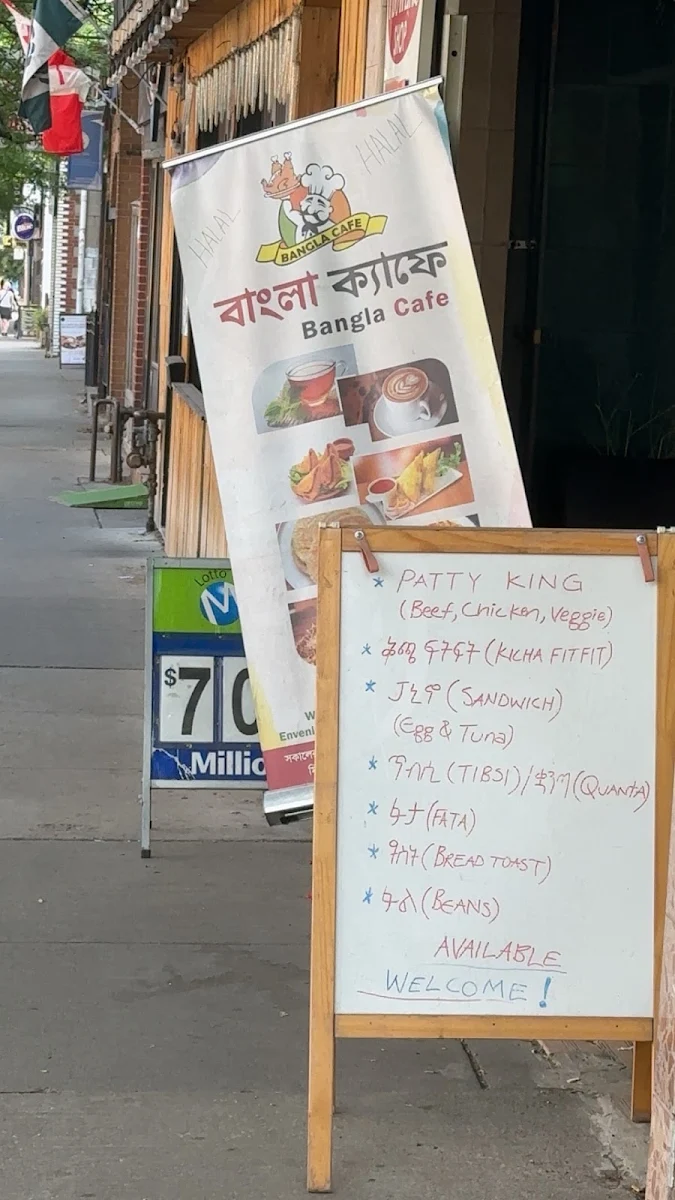 HALAL
HALAL
BANGLA CAFE
বাংলা ক্যাফে
Bangla Cafe
Lotto
M
$70
Millio
সকালের
* PATTY KING
(Beef, Chicken, Veggie)
* ቅጫ ፍትፍት (KICHA FITFIT)
* (SANDWICH)
(Egg & Tuna)
* ጥብሲ (TIBSI)/ቋንጣ (QUANTA)
* ፋታ (FATA)
* (BREAD TOAST)
* ፉል (BEANS)
AVAILABLE
WELCOME!
SHOP